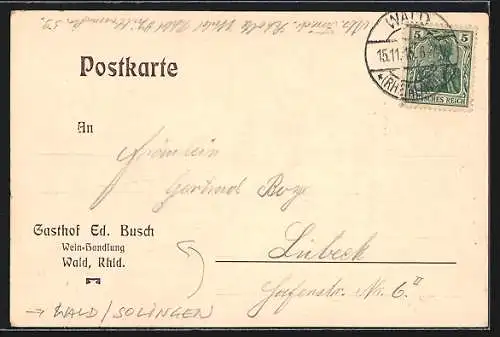 WALD
5 5
15.11.
(RHEINL
DEUTSCHES REICH
Postkarte
An
Fräulein
Gertrud
Gasthof Ed. Busch
Wein-Handlung
Wald, Rhld.
Lübeck
Hafenstr. Nr. 6 II
→ WALD/SOLINGEN